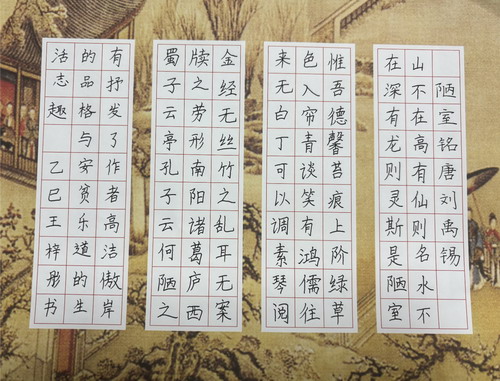 陋室铭唐刘禹锡
山不在高有仙则名水不
在深有龙则灵斯是陋室
惟吾德馨苔痕上阶绿草
色入帘青谈笑有鸿儒往
来无白丁可以调素琴阅
金经无丝竹之乱耳无案
牍之劳形南阳诸葛庐西
蜀子云亭孔子云何陋之
有抒发了作者高洁傲岸
的品格与安贫乐道的生
活志趣 乙巳王梓彤书